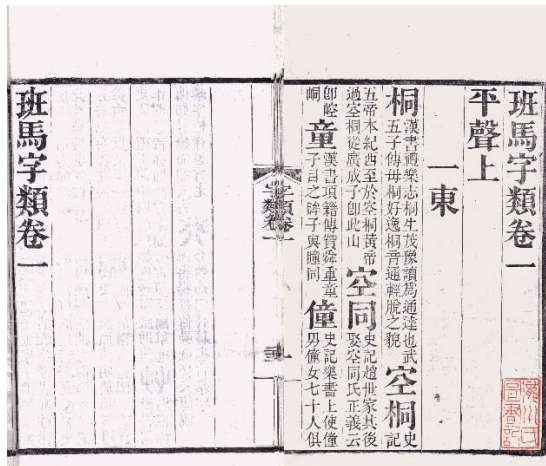 班馬字類卷一
平聲上
一東
桐漢書禮樂志桐生茂豫讀爲通達也武五子傳毋桐好逸桐音通輕脫之貌空桐史記
五帝本紀西至於空桐黃帝過空桐從廣成子卽此山空同史記趙世家其後娶空同氏正義云
卽崆峒童漢書項籍傳贊舜重童子目之眸子與瞳同僮史記樂書上使僮男僮女七十人俱
字類卷一
班馬字類卷一
瀧川氏
圖書記